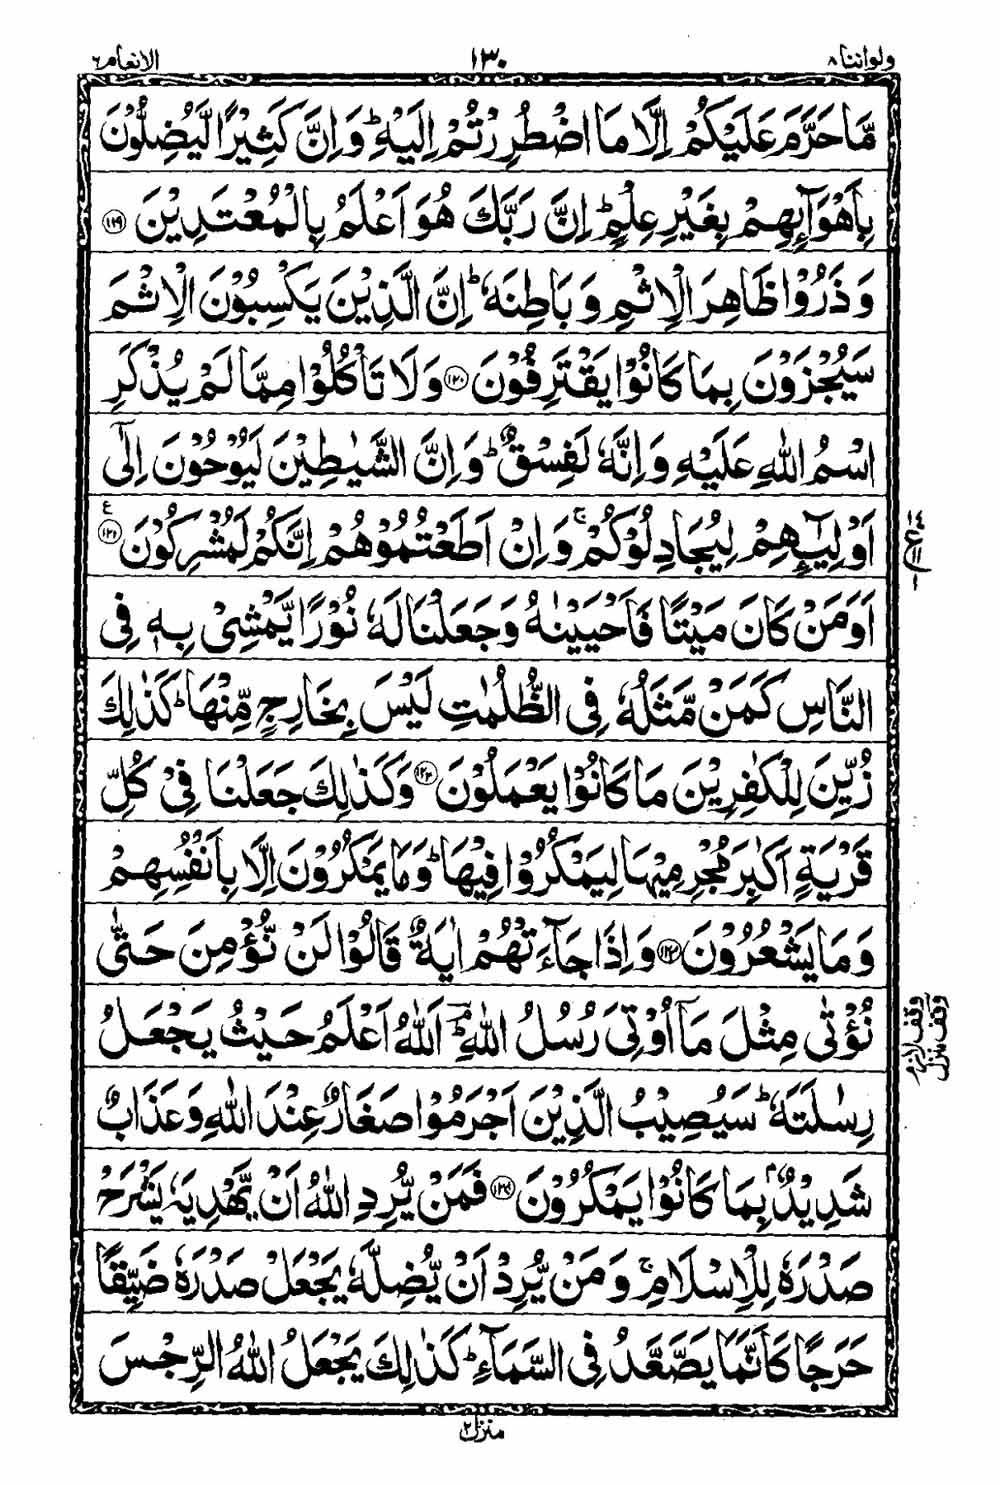 ولواننا ٨ ١٣٠ الانعام ٦
مَّا حَرَّمَ عَلَيْكُمْ اِلَّا مَا اضْطُرِرْتُمْ اِلَيْهِ ؕ وَاِنَّ كَثِيْرًا لَّيُضِلُّوْنَ
بِاَهْوَآئِهِمْ بِغَيْرِ عِلْمٍ ؕ اِنَّ رَبَّكَ هُوَ اَعْلَمُ بِالْمُعْتَدِيْنَ ﴿۱۱۹﴾
وَذَرُوْا ظَاهِرَ الْاِثْمِ وَبَاطِنَهٗ ؕ اِنَّ الَّذِيْنَ يَكْسِبُوْنَ الْاِثْمَ
سَيُجْزَوْنَ بِمَا كَانُوْا يَقْتَرِفُوْنَ ﴿۱۲۰﴾ وَلَا تَاْكُلُوْا مِمَّا لَمْ يُذْكَرِ
اسْمُ اللّٰهِ عَلَيْهِ وَاِنَّهٗ لَفِسْقٌ ؕ وَاِنَّ الشَّيٰطِيْنَ لَيُوْحُوْنَ اِلٰٓى
اَوْلِيٰٓـئِهِمْ لِيُجَادِلُوْكُمْ ۚ وَاِنْ اَطَعْتُمُوْهُمْ اِنَّكُمْ لَمُشْرِكُوْنَ ﴿۱۲۱﴾ ع
اَوَمَنْ كَانَ مَيْتًا فَاَحْيَيْنٰهُ وَجَعَلْنَا لَهٗ نُوْرًا يَّمْشِيْ بِهٖ فِي
النَّاسِ كَمَنْ مَّثَلُهٗ فِي الظُّلُمٰتِ لَيْسَ بِخَارِجٍ مِّنْهَا ؕ كَذٰلِكَ
زُيِّنَ لِلْكٰفِرِيْنَ مَا كَانُوْا يَعْمَلُوْنَ ﴿۱۲۲﴾ وَكَذٰلِكَ جَعَلْنَا فِيْ كُلِّ
قَرْيَةٍ اَكٰبِرَ مُجْرِمِيْهَا لِيَمْكُرُوْا فِيْهَا ؕ وَمَا يَمْكُرُوْنَ اِلَّا بِاَنْفُسِهِمْ
وَمَا يَشْعُرُوْنَ ﴿۱۲۳﴾ وَاِذَا جَآءَتْهُمْ اٰيَةٌ قَالُوْا لَنْ نُّؤْمِنَ حَتّٰى
نُؤْتٰى مِثْلَ مَآ اُوْتِيَ رُسُلُ اللّٰهِ ؕۘ اَللّٰهُ اَعْلَمُ حَيْثُ يَجْعَلُ
رِسٰلَتَهٗ ؕ سَيُصِيْبُ الَّذِيْنَ اَجْرَمُوْا صَغَارٌ عِنْدَ اللّٰهِ وَعَذَابٌ
شَدِيْدٌۢ بِمَا كَانُوْا يَمْكُرُوْنَ ﴿۱۲۴﴾ فَمَنْ يُّرِدِ اللّٰهُ اَنْ يَّهْدِيَهٗ يَشْرَحْ
صَدْرَهٗ لِلْاِسْلَامِ ۚ وَمَنْ يُّرِدْ اَنْ يُّضِلَّهٗ يَجْعَلْ صَدْرَهٗ ضَيِّقًا
حَرَجًا كَاَنَّمَا يَصَّعَّدُ فِي السَّمَآءِ ؕ كَذٰلِكَ يَجْعَلُ اللّٰهُ الرِّجْسَ
وقف لازم
وقف منزل
منزل ٢